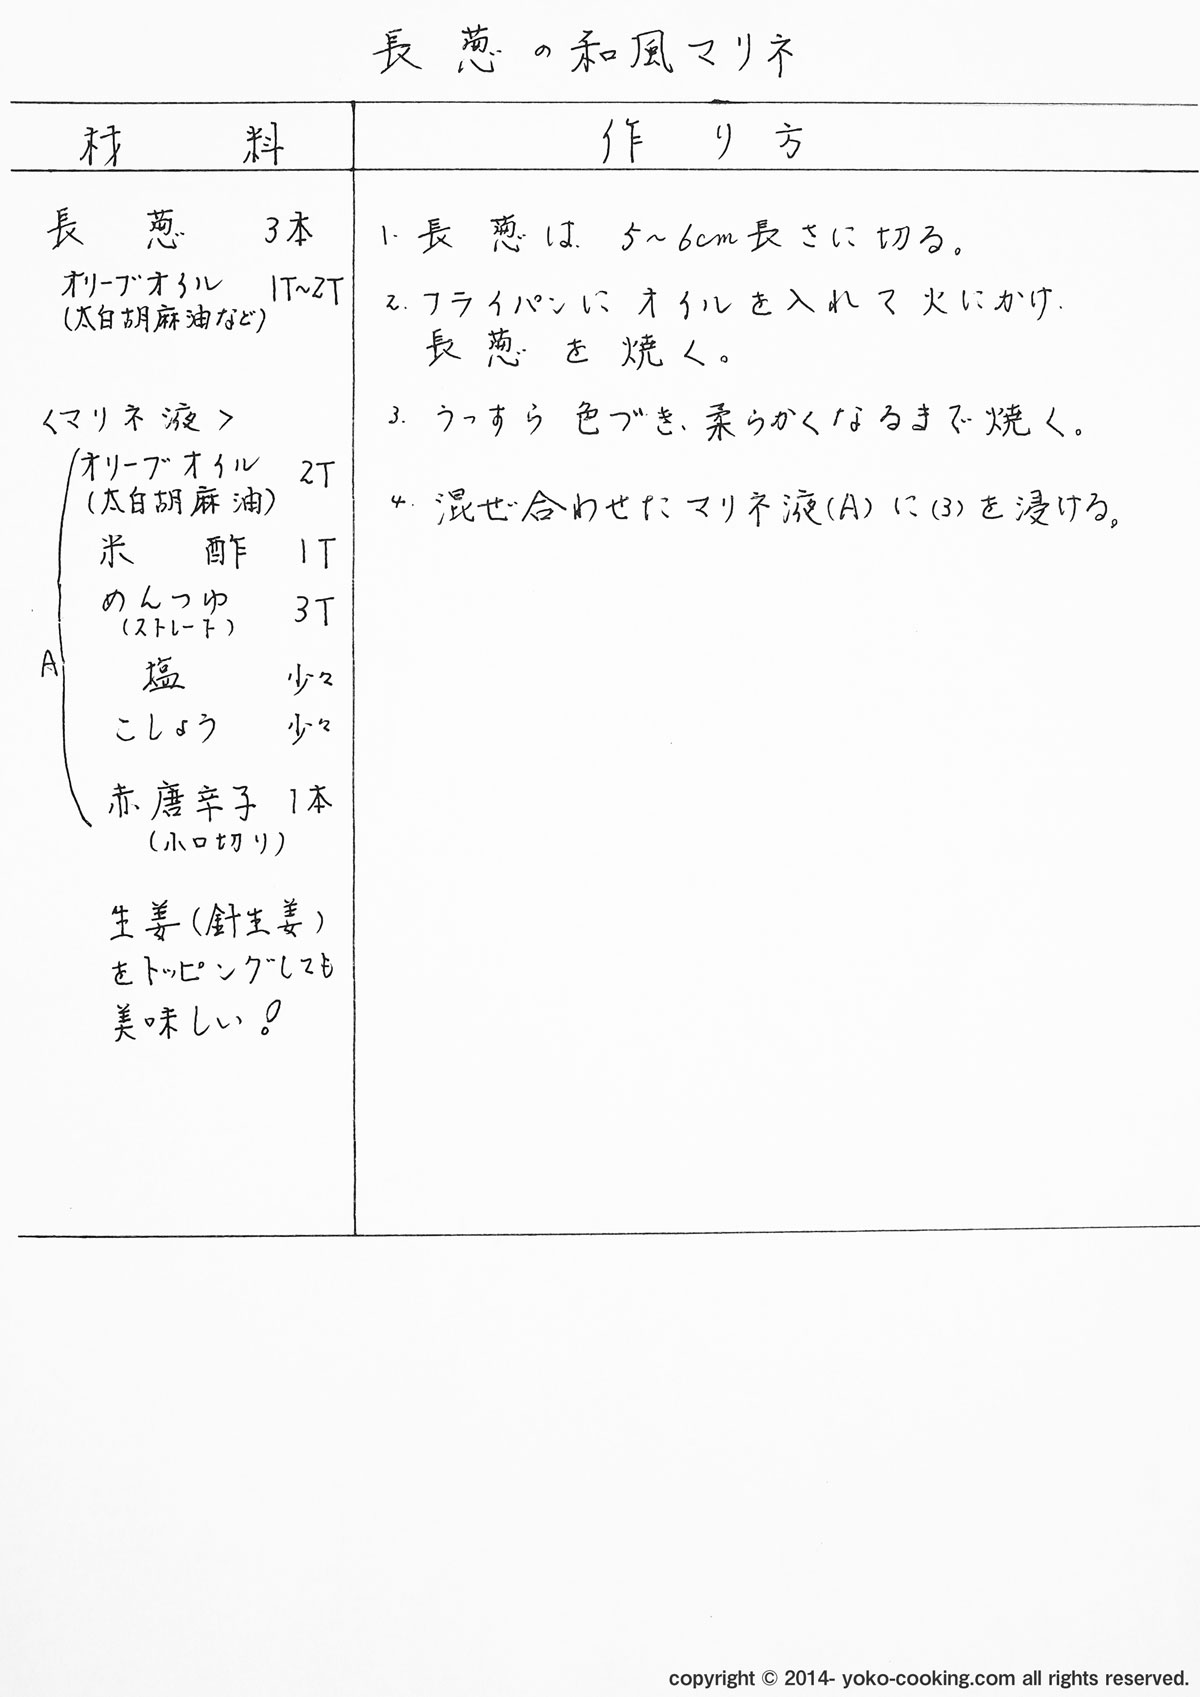 長葱の和風マリネ
材料
作り方
長葱 3本
オリーブオイル 1T~2T
(太白胡麻油など)
<マリネ液>
オリーブオイル 2T
(太白胡麻油)
米酢 1T
めんつゆ 3T
(ストレート)
A
塩 少々
こしょう 少々
赤唐辛子 1本
(小口切り)
生姜(針生姜)
をトッピングしても
美味しい!
1. 長葱は、5~6cm長さに切る。
2. フライパンにオイルを入れて火にかけ、
長葱を焼く。
3. うっすら色づき、柔らかくなるまで焼く。
4. 混ぜ合わせたマリネ液(A)に(3)を浸ける。
copyright © 2014- yoko-cooking.com all rights reserved.